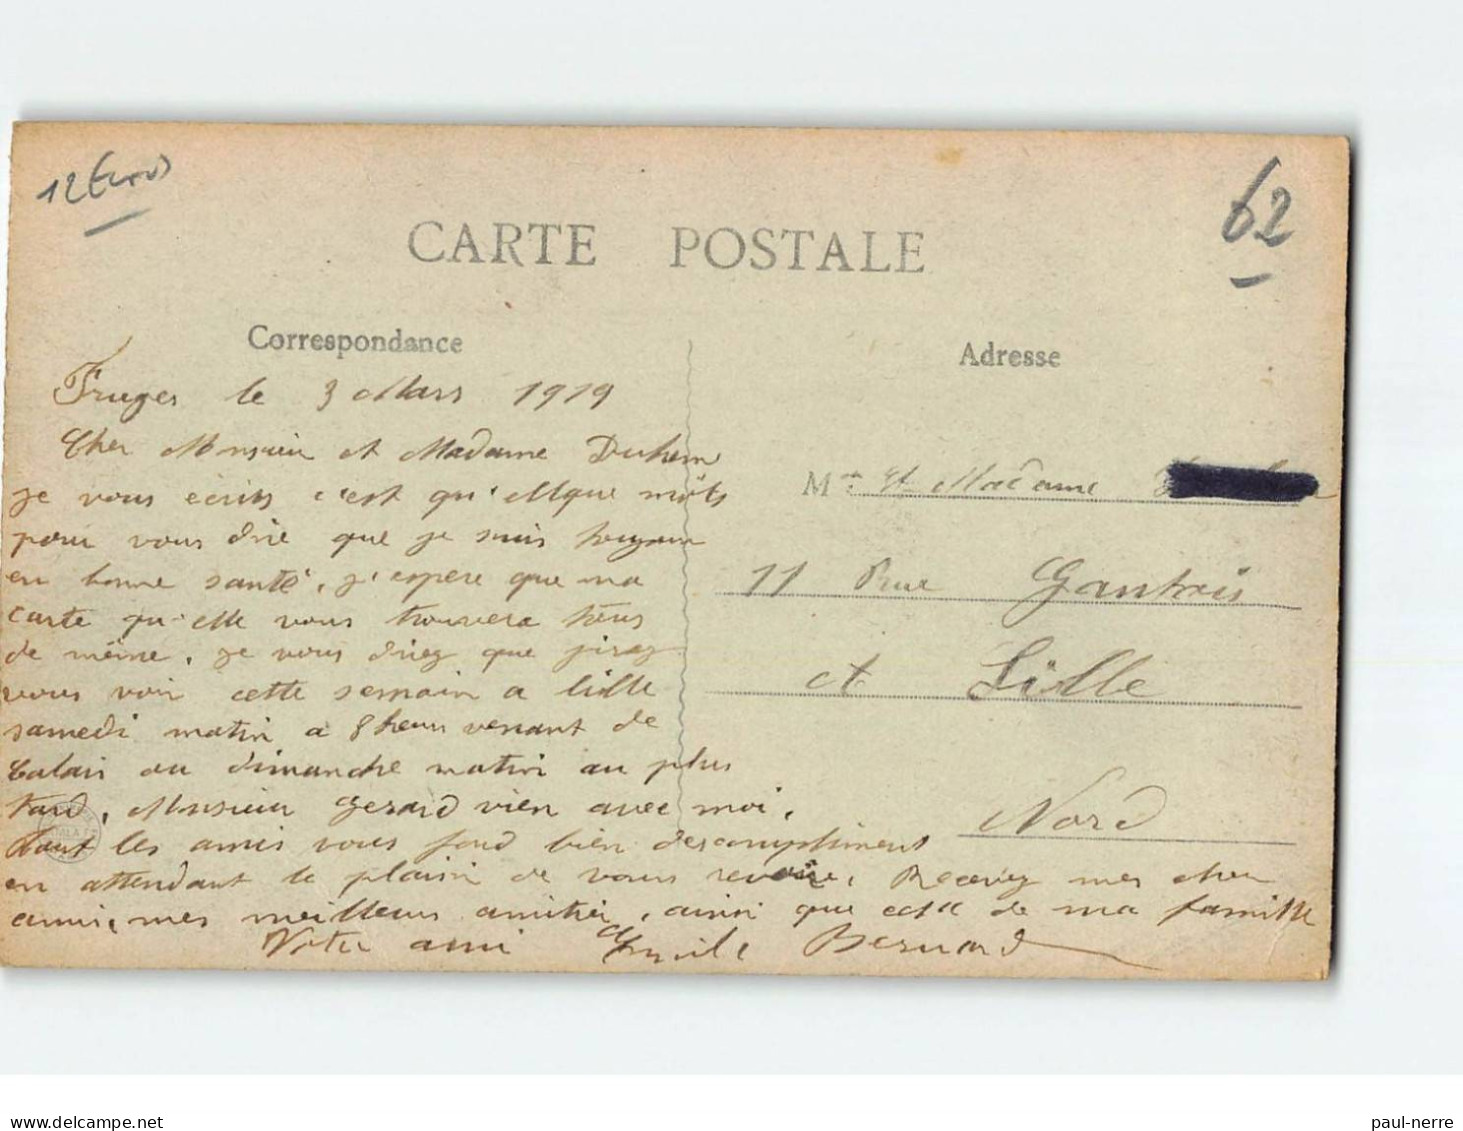 12 Euros
62
CARTE POSTALE
Correspondance
Fruges le 3 Mars 1919
Cher Monsieur et Madame Duhem
je vous écris c'est qu'ellque môts
pour vous dire que je suis toujour
en bonne santé, j'espère que ma
carte qu'elle vous trouvera tous
de même, je vous direz que j'irez
vous voir cette semain a lille
samedi matin a 8 heur venant de
Calais ou dimanche matin au plus
tard, Monsieur Gerard vien avec moi,
tout les amis vous fond bien des compliment
en attendant le plaisir de vous revoire, Recevez mes cher
amis, mes meilleurs amitiés, ainsi que celle de ma famille
Votre ami Emile Bernard
Adresse
M. et Madame
11 Rue Gantois
et Lille
Nord
delcampe.net
paul-nerre